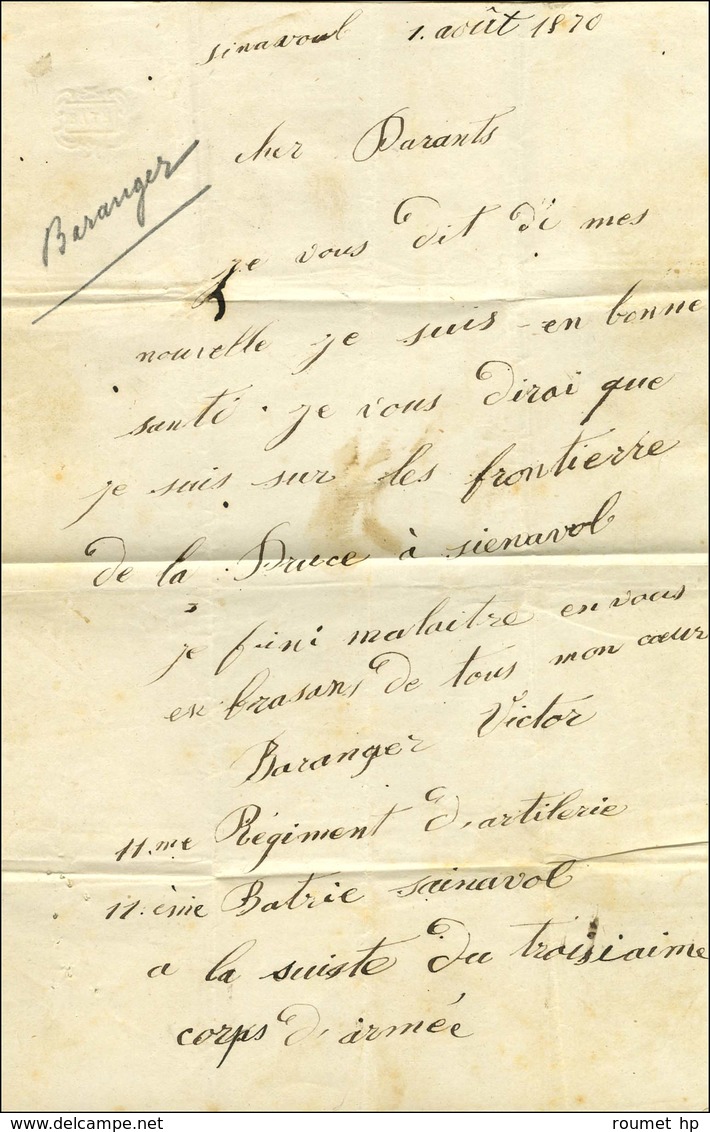 sinavoul 1. août 1870
cher Parants
Baranger
je vous dit dé mes
nouvelle je suis en bonne
santé. je vous dirai que
je suis sur les frontierre
de la Pruce à sienavol
je fini malaitre en vous
en brasans de tous mon cœur
Baranger Victor
11.me Régiment d'artilerie
11.ème Batrie sainavol
a la suiste du troisiaime
corps d'armée
roumet hp